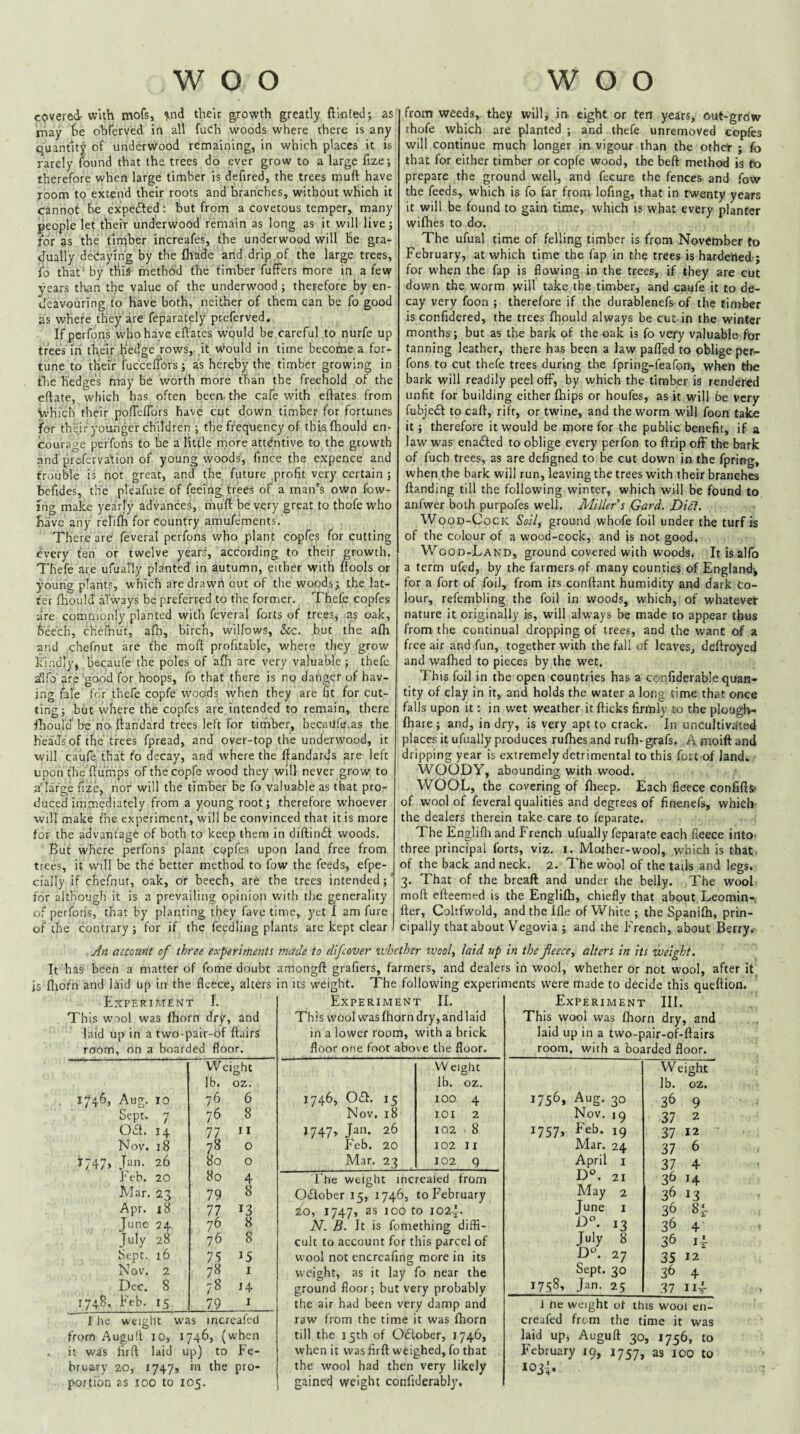 WOO
WOO
covered with mofs, and their growth greatly ftinted; as
may be obferved in all fuch woods where there is any
quantity of underwood remaining, in which places it is
rarely found that the trees do ever grow to a large fize;
therefore when large timber is defired, the trees muft have
room to extend their roots and branches, without which it
cannot be expected: but from a covetous temper, many
people let their underwood remain as long as it will live;
for as the timber increafes, the underwood will be gra-
dually decaying by the fhade and drip of the large trees,
fo that by this method the timber fuffers more in a few
years than the value of the underwood; therefore by en-
deavouring to have both, neither of them can be fo good
as where they are feparately preferved.
If perfons who have eftates would be careful to nurfe up
trees in their hedge rows, it would in time become a for-
tune to their fucceffors; as hereby the timber growing in
the hedges may be worth more than the freehold of the
eftate, which has often been the cafe with eftates from
which their poffeffors have cut down timber for fortunes
for their younger children; the frequency of this fhould en-
courage perfons to be a little more attentive to the growth
and prefervation of young woods, fince the expence and
trouble is not great, and the future profit very certain;
befides, the pleafure of feeing trees of a man's own fow-
ing make yearly advances, muft be very great to thofe who
have any relifh for country amufements.
There are feveral perfons who plant copfes for cutting
every ten or twelve years, according to their growth.
Thefe are ufually planted in autumn, either with ftools or
young plants, which are drawn out of the woods; the lat-
ter fhould always be preferred to the former. Thefe copfes
are commonly planted with feveral forts of trees, as oak,
beech, chefnut, afh, birch, willows, &c. but the afh
and chefnut are the moft profitable, where they grow
kindly, becaufe the poles of afh are very valuable; thefe
alfo are good for hoops, fo that there is no danger of hav-
ing fale for thefe copfe woods when they are fit for cut-
ting; but where the copfes are intended to remain, there
fhould be no ftandard trees left for timber, becaufe as the
heads of the trees fpread, and over-top the underwood, it
will caufe that to decay, and where the ftandards are left
upon the ftumps of the copfe wood they will never grow to
a large fize, nor will the timber be fo valuable as that pro-
duced immediately from a young root; therefore whoever
will make the experiment, will be convinced that it is more
for the advantage of both to keep them in diftinct woods.
But where perfons plant copfes upon land free from
trees, it will be the better method to fow the feeds, efpe-
cially if chefnut, oak, or beech, are the trees intended;
for although it is a prevailing opinion with the generality
of perfons, that by planting they fave time, yet I am fure
of the contrary; for if the feedling plants are kept clear
from weeds, they will, in eight or ten years, out-grow
thofe which are planted; and thefe unremoved copfes
will continue much longer in vigour than the other; fo
that for either timber or copfe wood, the beft method is to
prepare the ground well, and fecure the fences and fow
the feeds, which is fo far from lofing, that in twenty years
it will be found to gain time, which is what every planter
wifhes to do.
The ufual time of felling timber is from November to
February, at which time the fap in the trees is hardened;
for when the fap is flowing in the trees, if they are cut
down the worm will take the timber, and caufe it to de-
cay very foon; therefore if the durablenefs of the timber
is confidered, the trees fhould always be cut in the winter
months; but as the bark of the oak is fo very valuable for
tanning leather, there has been a law paffed to oblige per-
fons to cut thefe trees during the fpring-feafon, when the
bark will readily peel off, by which the timber is rendered
unfit for building either fhips or houfes, as it will be very
fubject to caft, rift, or twine, and the worm will foon take
it; therefore it would be more for the public benefit, if a
law was enacted to oblige every perfon to ftrip off the bark
of fuch trees, as are defigned to be cut down in the fpring,
when the bark will run, leaving the trees with their branches
ftanding till the following winter, which will be found to
anfwer both purpofes well. Miller's Gard. Dict.
WOOD-COCK Soil, ground whofe foil under the turf is
of the colour of a wood-cock, and is not good.
WOOD-LAND, ground covered with woods. It is alfo
a term ufed, by the farmers of many counties of England,
for a fort of foil, from its conftant humidity and dark co-
lour, refembling the foil in woods, which, of whatever
nature it originally is, will always be made to appear thus
from the continual dropping of trees, and the want of a
free air and fun, together with the fall of leaves, deftroyed
and wafhed to pieces by the wet.
This foil in the open countries has a confiderable quan-
tity of clay in it, and holds the water a long time that once
falls upon it: in wet weather it fticks firmly to the plough-
fhare; and, in dry, is very apt to crack. In uncultivated
places it ufually produces rufhes and rufh-grafs. A moift and
dripping year is extremely detrimental to this fort of land.
WOODY, abounding with wood.
WOOL, the covering of fheep. Each fleece confifts
of wool of feveral qualities and degrees of finenefs, which
the dealers therein take care to feparate.
The Englifh and French ufually feparate each fleece into
three principal forts, viz. 1. Mother-wool, which is that
of the back and neck. 2. The wool of the tails and legs.
3. That of the breaft and under the belly. The wool
moft efteemed is the Englifh, chiefly that about Leomin-
fter, Coltfwold, and the Ifle of White; the Spanifh, prin-
cipally that about Vegovia; and the French, about Berry.
An account of three experiments made to difcover whether wool, laid up in the fleece, alters in its weight.
It has been a matter of fome doubt amongft grafiers, farmers, and dealers in wool, whether or not wool, after it
is fhorn and laid up in the fleece, alters in its weight. The following experiments were made to decide this queftion.
EXPERIMENT I.
This wool was fhorn dry, and
laid up in a two-pair-of ftairs
room, on a boarded floor.
Weight
lb. oz.
1746, Aug. 10 76 6
Sept. 7 76 8
Oct. 14 77 11
Nov. 18 78 0
1747, Jan. 26 80 0
Feb. 20 80 4
Mar. 23 79 8
Apr. 18 77 13
June 24 76 8
July 28 76 8
Sept. 16 75 15
Nov. 2 78 1
Dec. 8 78 14
1748, Feb. 15 79 1
The weight was increafed
from Auguft 10, 1746, (when
it was firft laid up) to Fe-
bruary 20, 1747, in the pro-
portion as 100 to 105.
EXPERIMENT II.
This wool was fhorn dry, and laid
in a lower room, with a brick
floor one foot above the floor.
Weight
lb. oz.
1746, Oct. 15 100 4
Nov. 18 101 2
1747, Jan. 26 102 8
Feb. 20 102 11
Mar. 23 102 9
The weight increafed from
October 15, 1746, to February
20, 1747, as 100 to 102½.
N. B. It is fomething diffi-
cult to account for this parcel of
wool not encreafing more in its
weight, as it lay fo near the
ground floor; but very probably
the air had been very damp and
raw from the time it was fhorn
till the 15th of October, 1746,
when it was firft weighed, fo that
the wool had then very likely
gained weight confiderably.
EXPERIMENT III.
This wool was fhorn dry, and
laid up in a two-pair-of-ftairs
room, with a boarded floor.
Weight
lb. oz.
1756, Aug. 30 36 9
Nov. 19 37 2
1757, Feb. 19 37 12
Mar. 24 37 6
April 1 37 4
D°. 21 36 14
May 2 36 13
June 1 36 8½
D°. 13 36 4
July 8 36 1½
D°. 27 35 12
Sept. 30 36 4
1758, Jan. 25 37 11½
The weight of this wool en-
creafed from the time it was
laid up, Auguft 30, 1756, to
February 19, 1757, as 100 to
103¼.